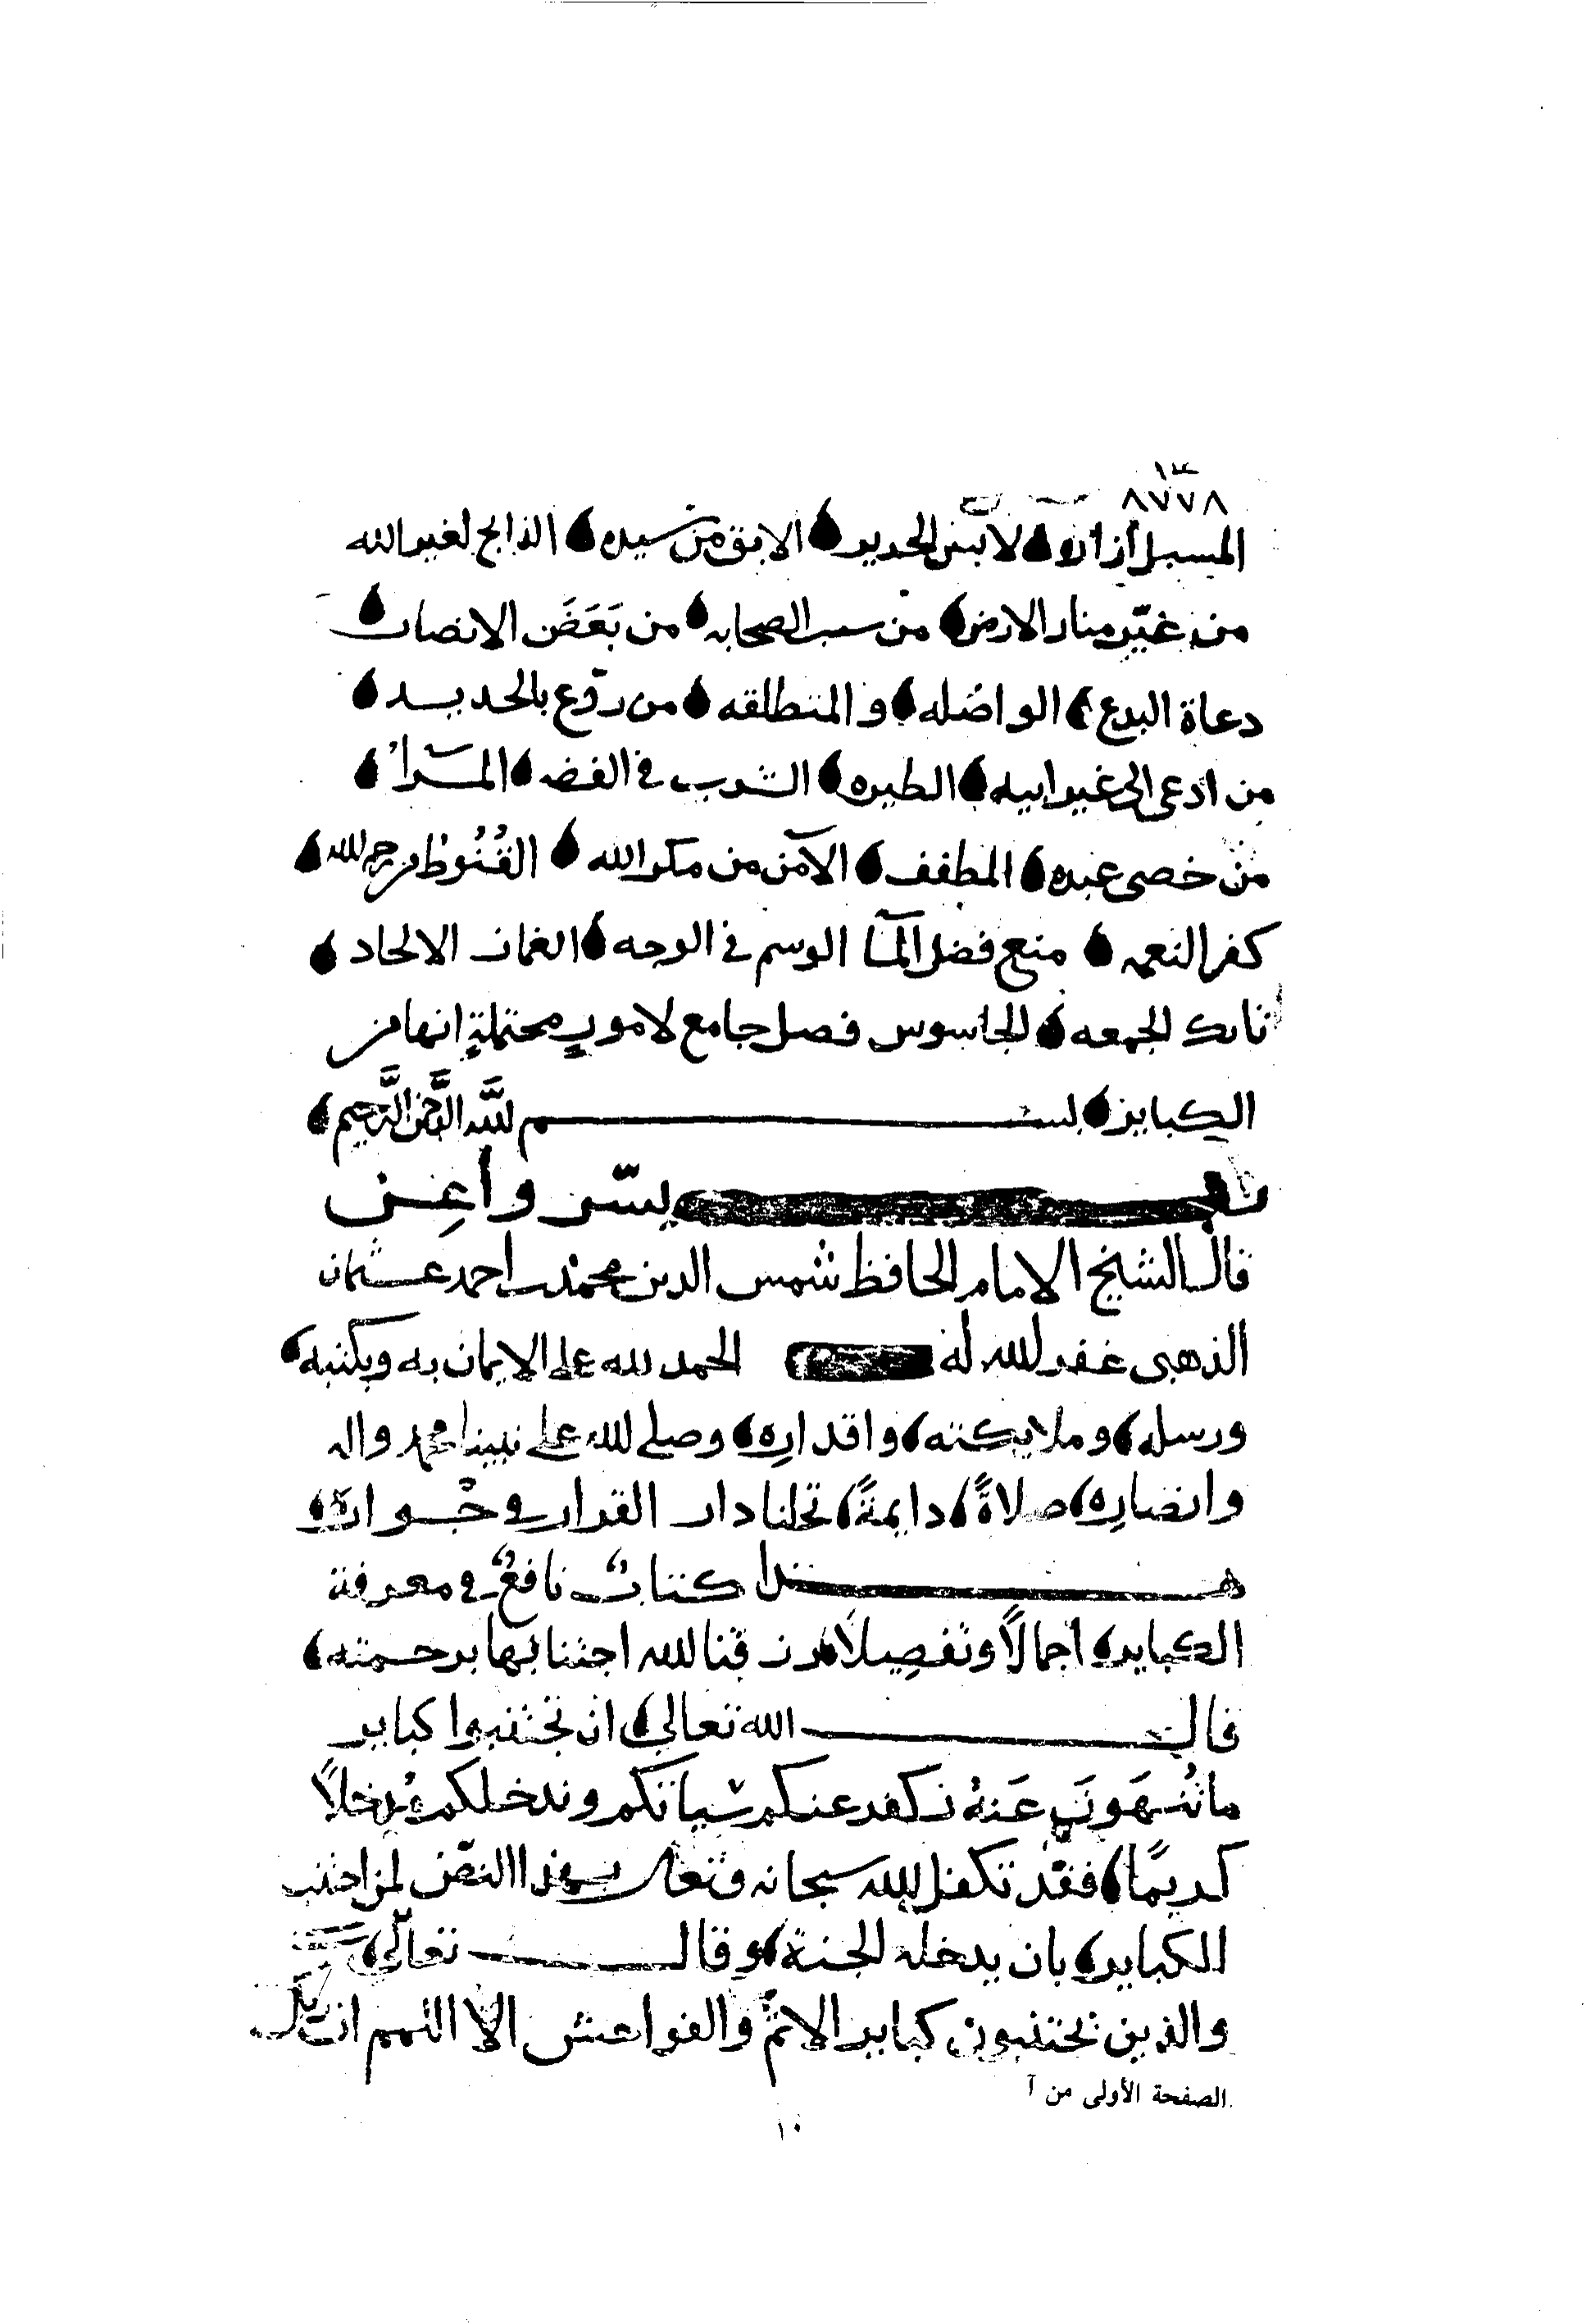 ٨٧٧٨
المسبل ازاره لابس الحرير الابق من سيده الذابح لغير الله
من غيّر منار الارض من سب الصحابه من بغض الانصار
دعاة البدع الواصله والمتطلقه من روّع بالحديد
من ادعى الى غير ابيه الطيره الشرب في الفضه المراء
من خصى عبده المطفف الآمن من مكر الله القنوط من رحمه الله
كفر النعمه منع فضل المآ الوسم في الوجه القمار الالحاد
تارك الجمعه الجاسوس فصل جامع لامورٍ محتملةٍ انها من
الكباير بسم الله الرحمن الرحيم
يسّر وأعِن
قال الشيخ الامام الحافظ شمس الدين محمد بن احمد عثمان
الذهبى غفر الله له الحمد لله على الايمان به وبكتبه
ورسله وملايكته واقداره وصلى الله على نبينا محمد واله
وانصاره صلاةً دايمةً تحلنا دار القرار في جواره
هذا كتاب نافعٌ في معرفة
الكباير اجمالاً وتفصيلاً رزقنا الله اجتنابها برحمته
قال الله تعالى ان تجتنبوا كباير
ما تُنهَونَ عَنهُ نكفر عنكم سيئاتكم وندخلكم مُدخلاً
كريمًا فقد تكفل الله سبحانه وتعالى بهذا النص لمن اجتنب
الكباير بان يدخله الجنة وقال تعالى
والذين يجتنبون كباير الاثم والفواحش الا اللمم ان ربك
الصفحة الأولى من آ
١٠